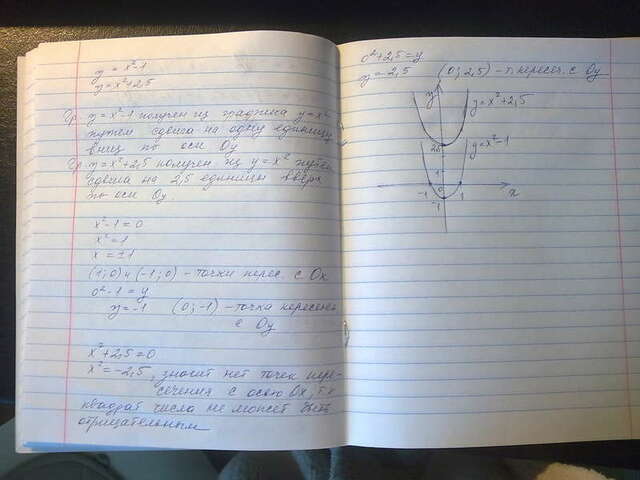 y = x²-1
y = x²+2,5
Гр. y = x²-1 получен из графика y = x²
путем сдвига на одну единицу
вниз по оси Oy
Гр. y = x²+2,5 получен из y = x² путем
сдвига на 2,5 единицы вверх
по оси Oy.
x²-1=0
x²=1
x = ±1
(1;0) и (-1;0) - точки перес. с Ox
0²-1=y
y=-1 (0;-1) - точка пересеч.
с Oy
x²+2,5=0
x²=-2,5, значит нет точек пере-
сечения с осью Ox, т.к
квадрат числа не может быть
отрицательным
0²+2,5=y
y=2,5 (0;2,5) - т. пересеч. с Oy
y
y=x²+2,5
y=x²-1
1
-1 0 1 x
-1